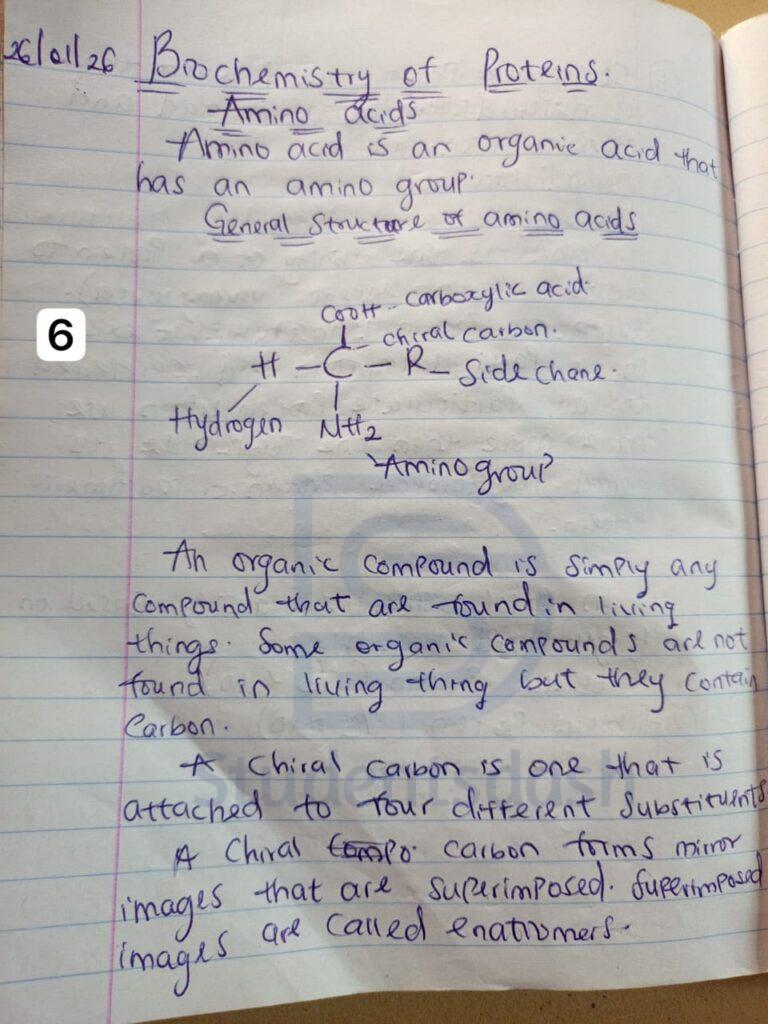 26/01/26 Biochemistry of Proteins.
Amino acids
Amino acid is an organic acid that
has an amino group.
General Structure of amino acids
COOH - carboxylic acid.
- chiral carbon.
H - C - R - Side chane.
Hydrogen NH2
Amino group
6
An organic compound is simply any
compound that are found in living
things. Some organic compounds are not
found in living thing but they contain
Carbon.
A chiral carbon is one that is
attached to four different substituents
A chiral carbon forms mirror
images that are superimposed. Superimposed
images are called enatiomers.
Studentsdash